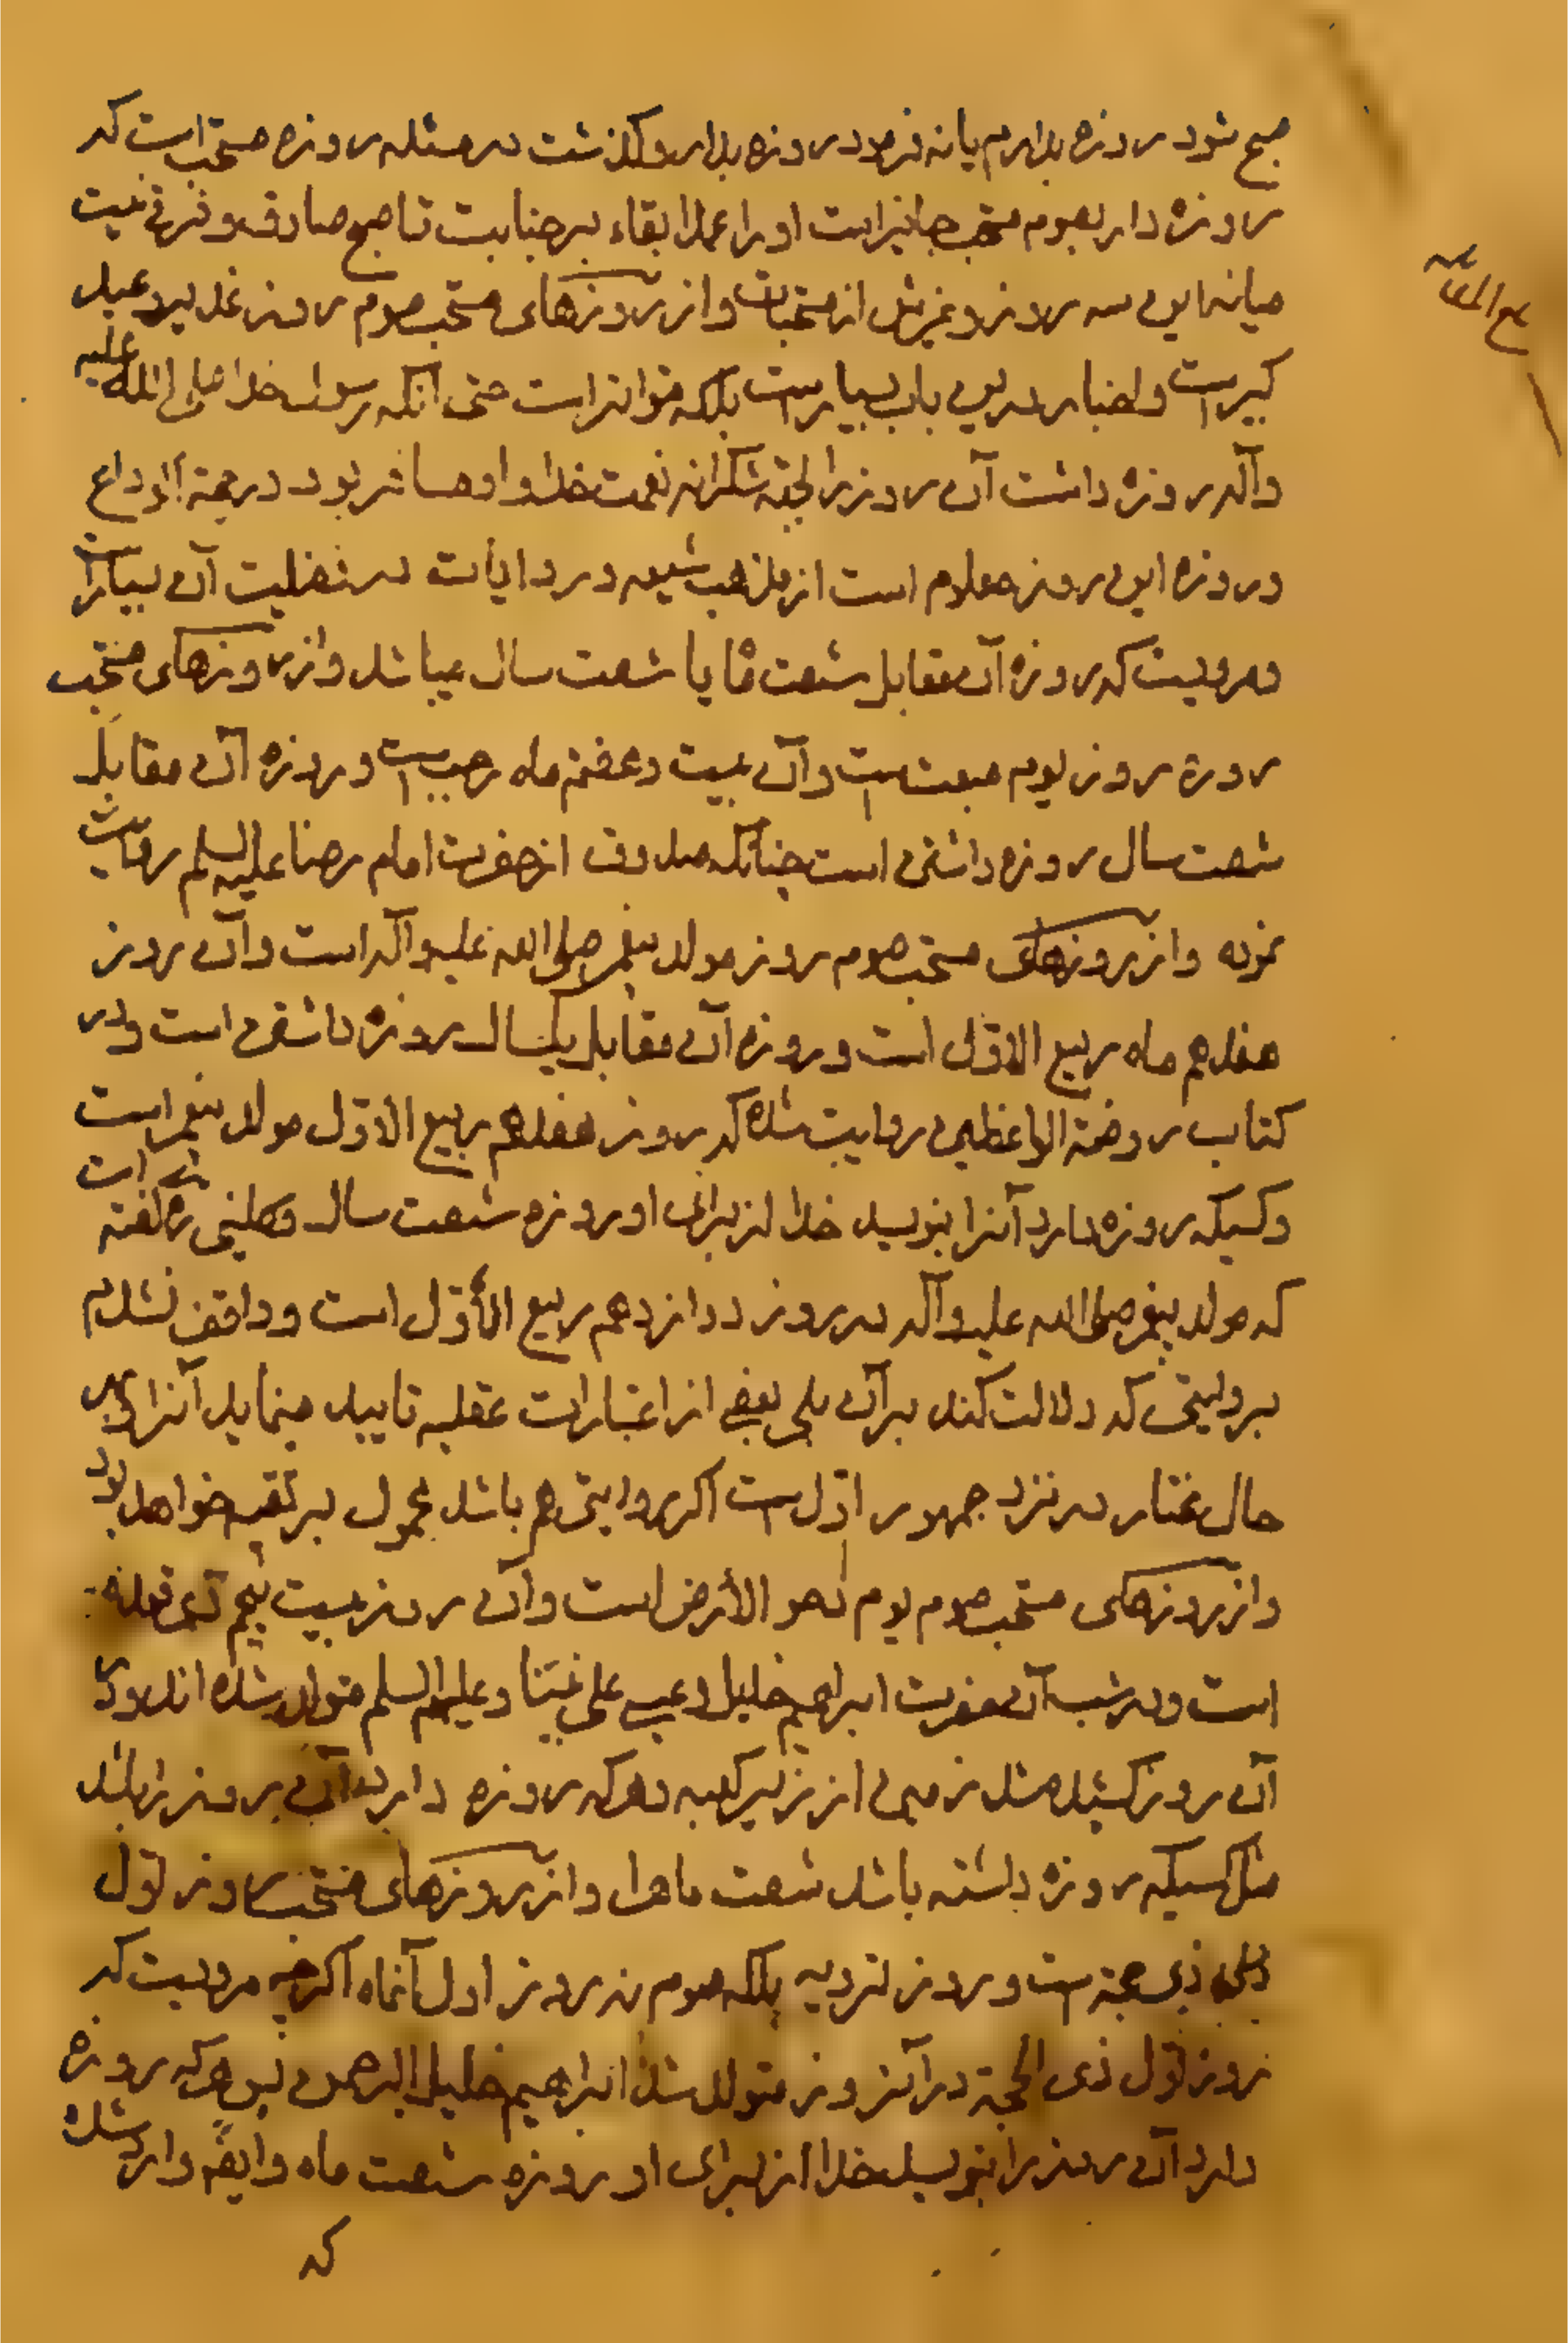 صبح شود روزه بدارم یا نه فرمود روزه بدار وگذشت در مسئله روزه مستحب است که
روزه دار بصوم مستحب جایز است او را عمدا بقاء بر جنابت تا صبح صادق و فرقی نیست
میانه این سه روز و غیرش از مستحبات و از روزهای مستحب صوم روز غدیر و عید
کبیر است و اخبار در این باب بسیار است بلکه متواتر است حتی آنکه رسول خدا صلی الله علیه
وآله روزه داشت آن روز را لجهة شکرانه نعمت خدا و او مسافر بود در حجة الوداع
و روزه این روز معلوم است از مذهب شیعه و روایات در فضلیت آن بسیار است
و مرویست که روزه آن مقابل شصت ماه یا شصت سال میباشد و از روزهای مستحب
روزه روز یوم مبعث است و آن بیست و هفتم ماه رجب است و روزه آن مقابل
شصت سال روزه داشتن است چنانکه صدوق از حضرت امام رضا علیه السلم روایت
نموده و از روزهای مستحب صوم روز مولد پیغمبر صلی الله علیه وآله است و آن روز
هفدهم ماه ربیع الاول است و روزه آن مقابل یکسال روزه داشتن است و در
کتاب روضة الواعظین روایت شده که روز هفدهم ربیع الاول مولد پیغمبر است
و کسیکه روزه دارد آنرا بنویسد خدا از برای او روزه شصت سال و کلینی ره گفته است
که مولد پیغمبر صلی الله علیه وآله در روز دوازدهم ربیع الأول است و واقف نشدم
بروایتی که دلالت کند بر آن بلی بعضی از اعتبارات عقلیه تایید مینماید آنرا بهر
حال مختار در نزد جمهور اول است اگر روایتی هم باشد محمول بر تقیه خواهد بود
و از روزهای مستحب صوم یوم دحو الأرض است و آن روز بیست پنجم ذی قعده
است و در شب آن حضرت ابراهیم خلیل و عیسی علی نبینا و علیهم السلم متولد شده اند و در
آن روز کشیده شد زمین از زیر کعبه و هر که روزه دارد آن روز را باشد
مثل کسیکه روزه داشته باشد شصت ماه را و از روزهای مستحب روز اول
ذی حجه است و روز ترویه بلکه صوم نه روز اول آنماه اگر چه مرویست که
روز اول ذی الحجة در آنروز متولد شد ابراهیم خلیل الرحمن پس هر که روزه
دارد آن روز را بنویسد خدا از برای او روزه شصت ماه و ایضا وارد شده
که